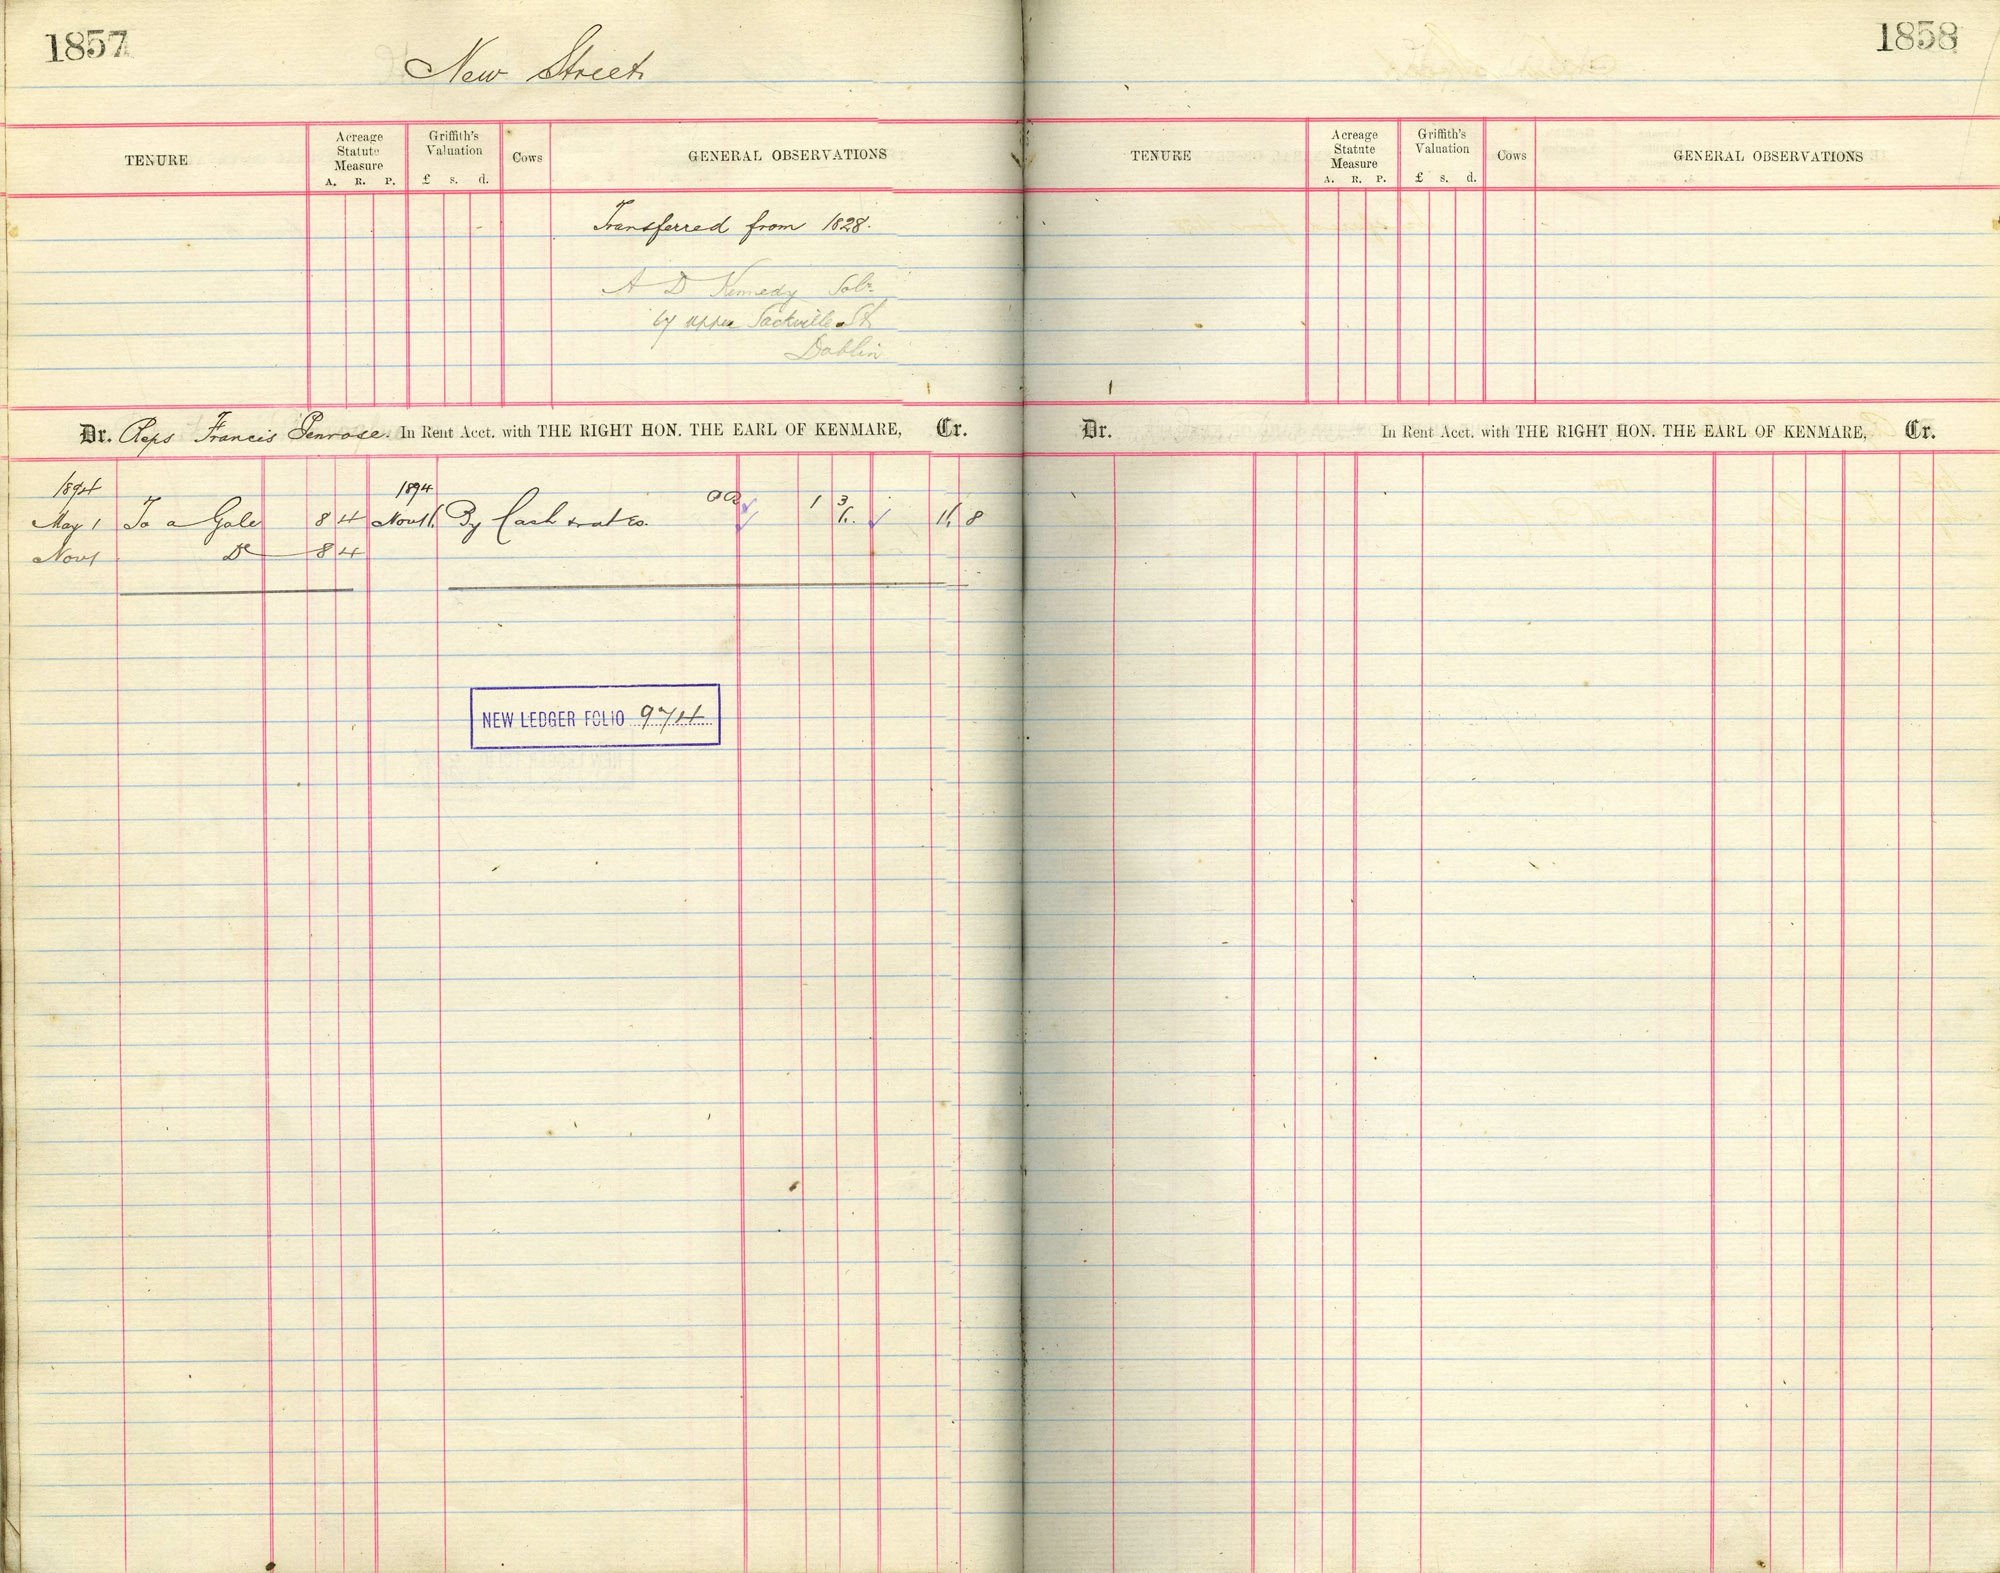 1857
New Street
TENURE
Acreage Statute Measure
A. R. P.
Griffith's Valuation
£ s. d.
Cows
GENERAL OBSERVATIONS
Transferred from 1828.
A D Kennedy Solr
upper Sackville St
Dublin
Dr. Reps Francis Penrose. In Rent Acct. with THE RIGHT HON. THE EARL OF KENMARE, Cr.
1894 1894
May 1 To a Gale 8 4 Nov 16 By Cash & rates. 1 3
Nov 1 Do 8 4
NEW LEDGER FOLIO 974
1858
TENURE
Acreage Statute Measure
A. R. P.
Griffith's Valuation
£ s. d.
Cows
GENERAL OBSERVATIONS
Dr. In Rent Acct. with THE RIGHT HON. THE EARL OF KENMARE, Cr.